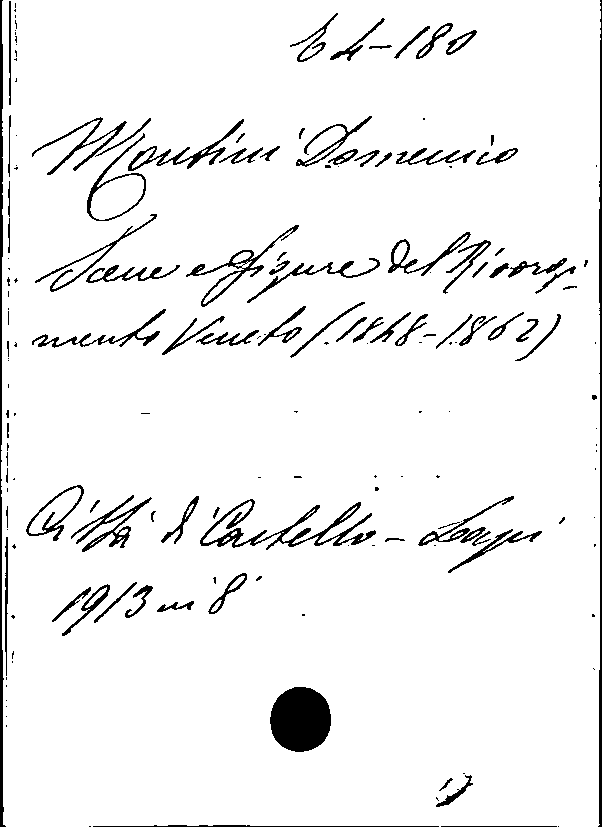 E 4-180
Montini Domenico
Scene e figure del Risorgi-
mento Veneto (1848-1862)
Città di Castello - Lapi
1913 in 8°